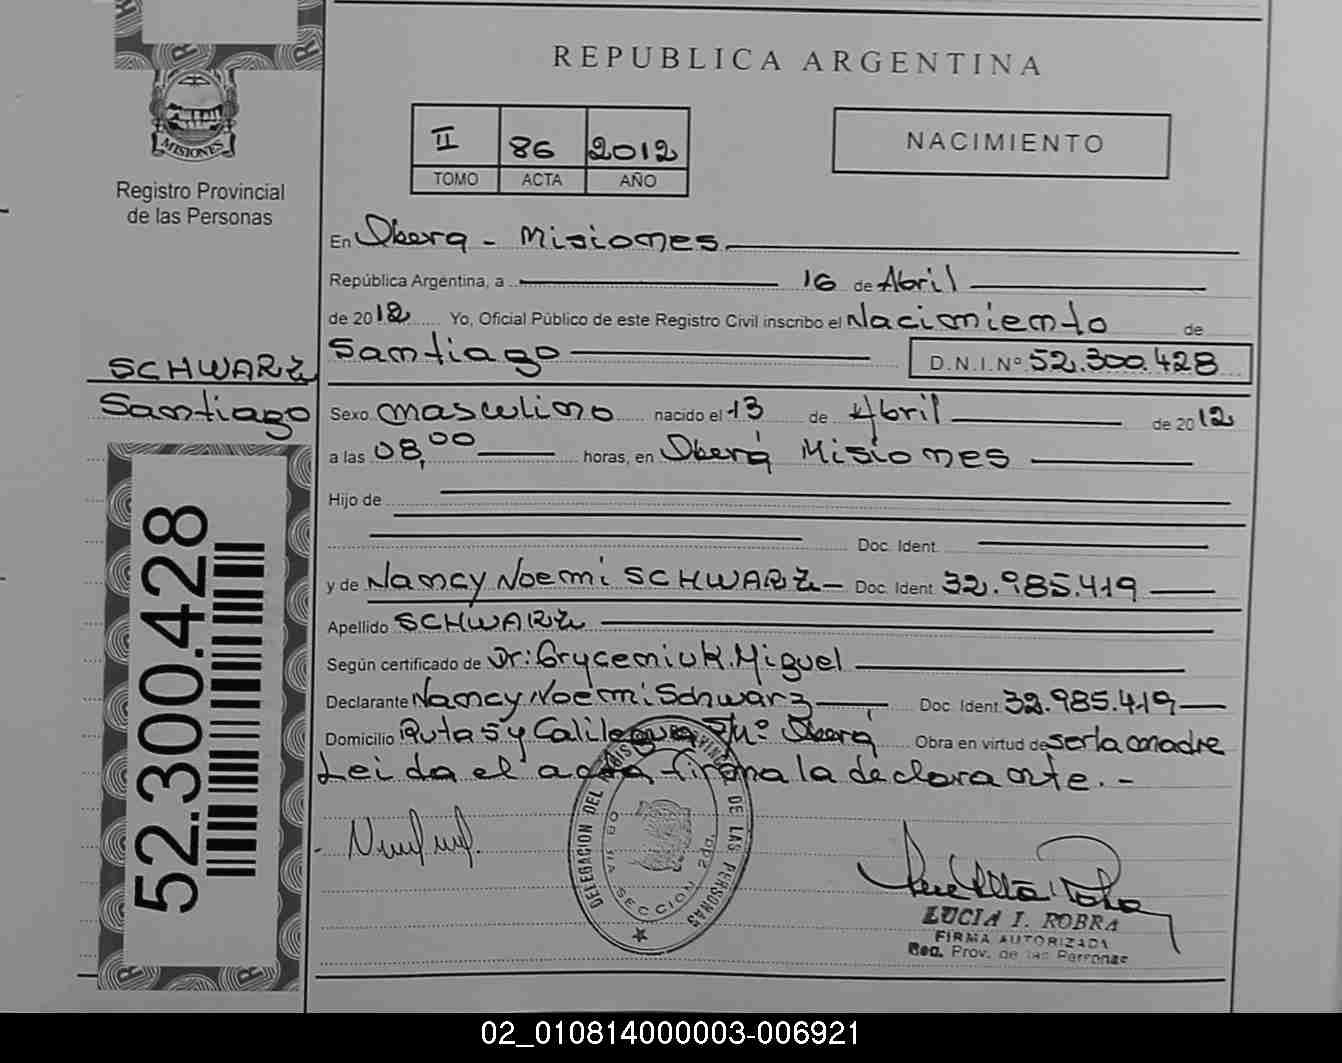 REPUBLICA ARGENTINA
MISIONES
Registro Provincial
de las Personas
II 86 2012
TOMO ACTA AÑO
NACIMIENTO
En Oberá - Misiones
República Argentina, a 16 de Abril
de 2012 Yo, Oficial Público de este Registro Civil inscribo el Nacimiento de
Santiago D.N.I.Nº 52.300.428
SCHWARZ
Santiago
Sexo masculino nacido el 13 de Abril de 2012
a las 08,00 horas, en Oberá Misiones
Hijo de
Doc. Ident.
y de Nancy Noemi SCHWARZ Doc. Ident. 32.985.419
Apellido SCHWARZ
Según certificado de Dr: Gryceniuk. Miguel
Declarante Nancy Noemi Schwarz Doc. Ident. 32.985.419
Domicilio Rutas 5 y Calilegua Oberá Obra en virtud de ser la madre
Leida el acta firma la declarante.-
52.300.428
DELEGACION DEL REGISTRO PROVINCIAL DE LAS PERSONAS
OBERA SECCION 2da.
LUCIA I. ROBRA
FIRMA AUTORIZADA
Reg. Prov. de las Personas
02_010814000003-006921